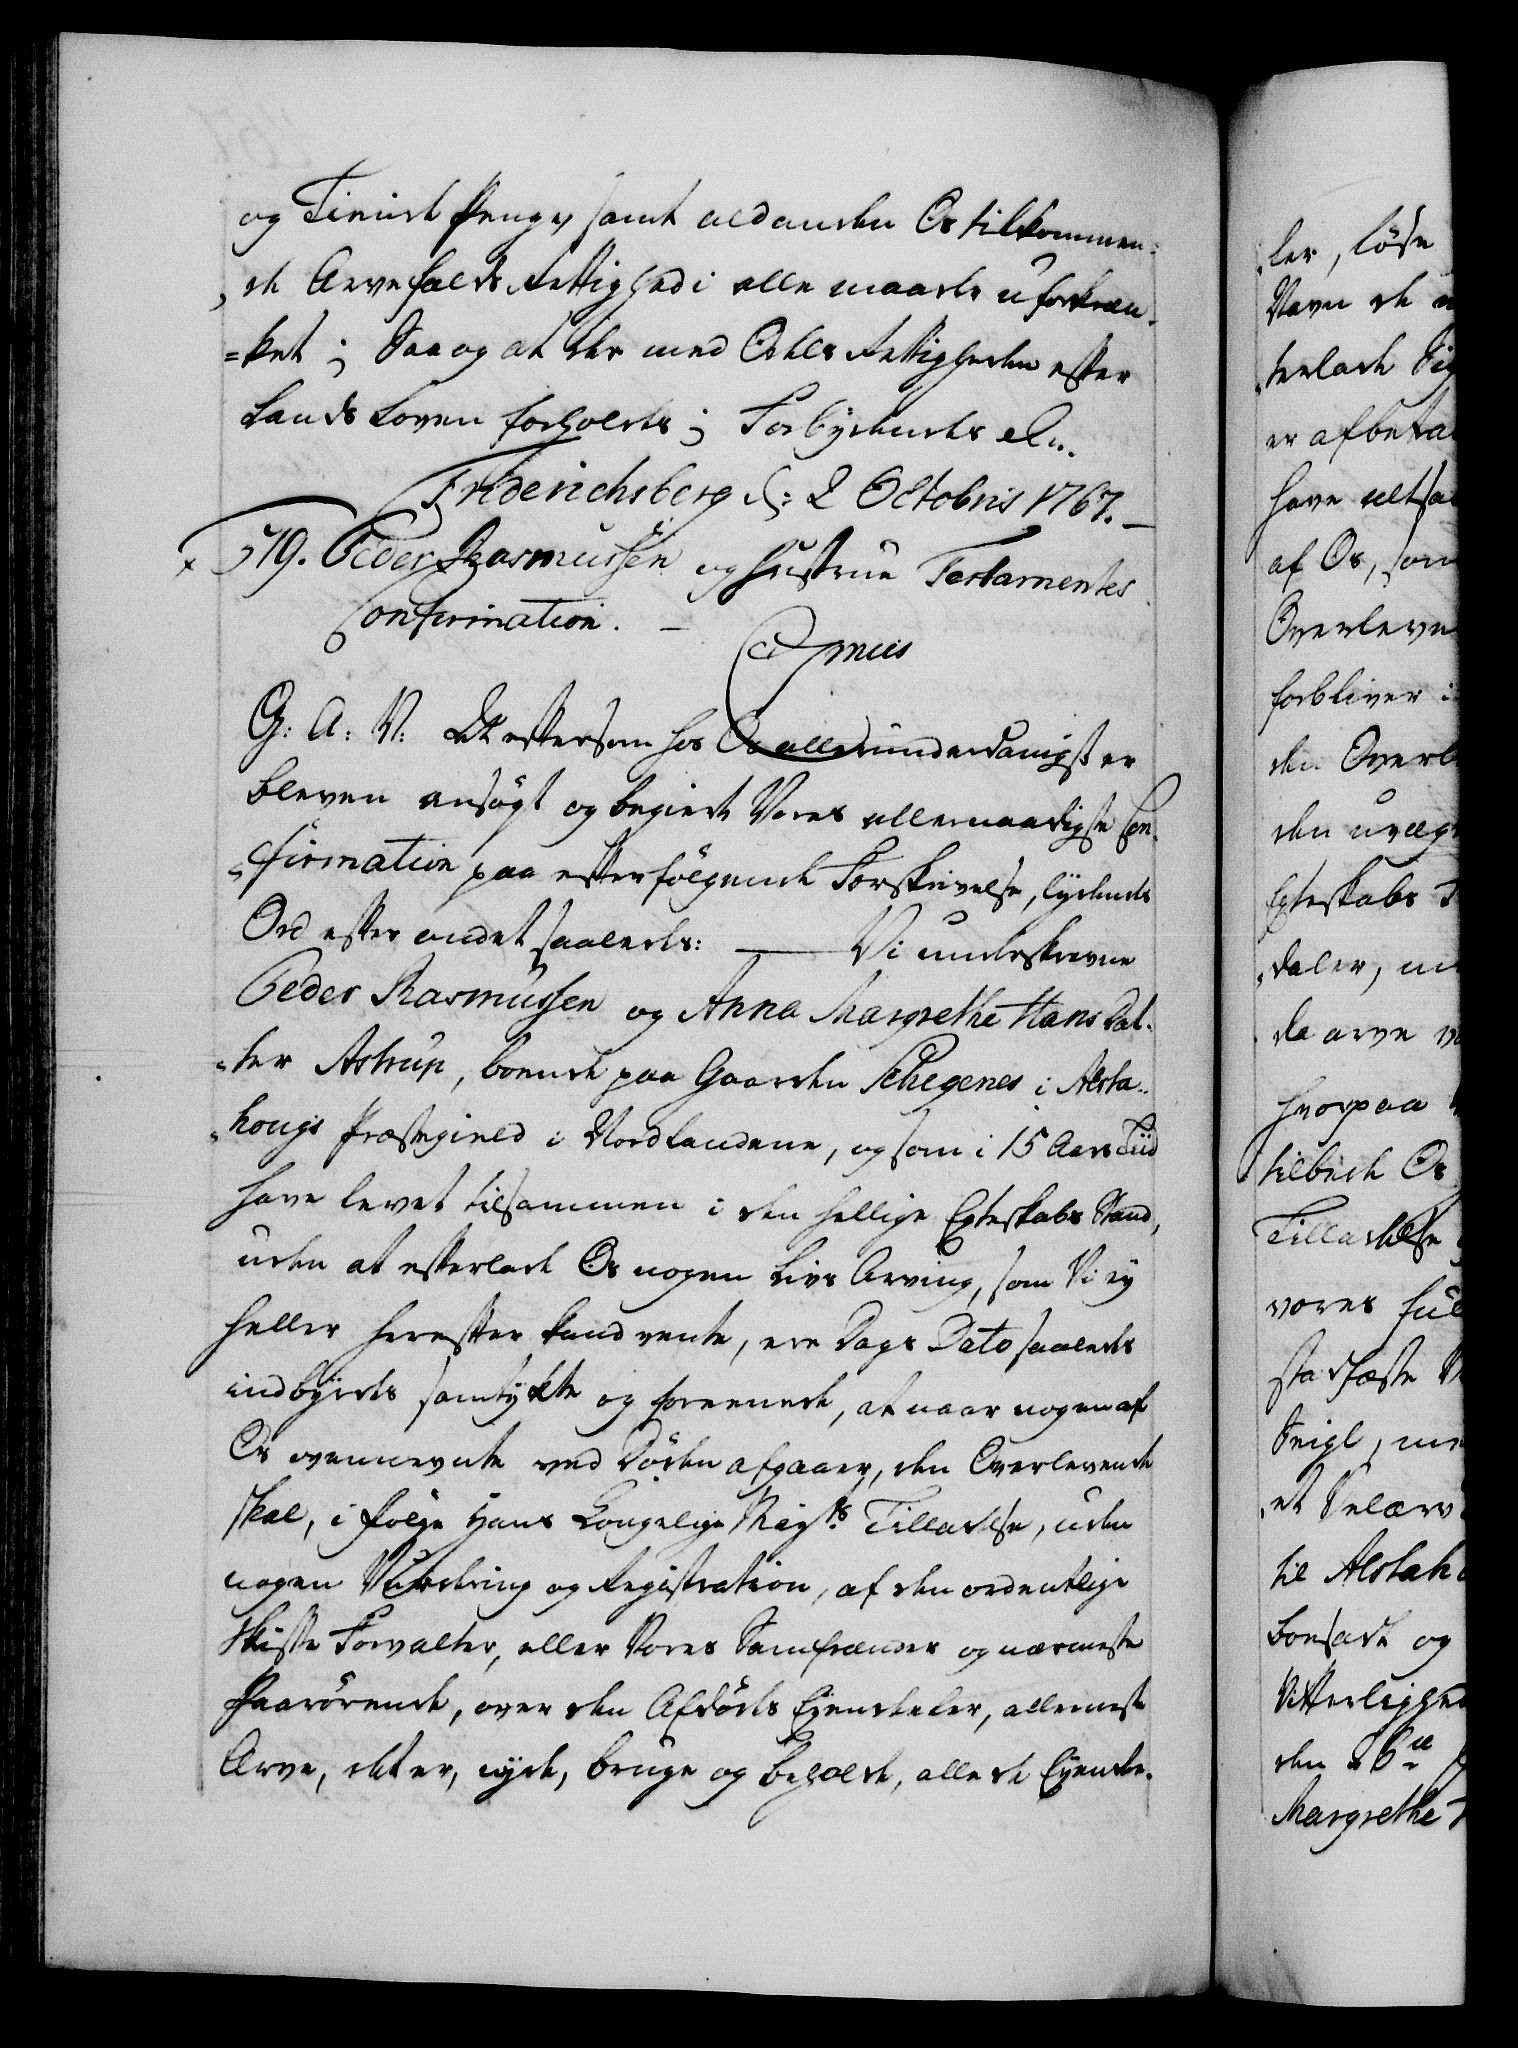 og Tiende Penge, samt ald anden Os tilkommen¬
„de Arvefalds Rettighed i alle maade uforkræn¬
=ket; Saa og at der med Odels Rettigheden efter
Lands Loven forholdes; Forbydendes etc.
Friderichsberg d: 2 Octobris 1767. —
x 519. Peder Rasmussen og Hustrue Testamentes
Confirmation. —
Gratis
G: A: V: At eftersom hos Os allerunderdanigst er
bleven ansøgt og begiert Vores allernaadigste Con¬
„firmation paa efterfølgende Forskrivelse, lydende
Ord efter andet saaledes: — Vi underskrevne
Peder Rasmussen og Anna Margrethe Hans Dat¬
„ter Astrup, boende paa Gaarden Schegenes i Alsta¬
„hougs Præstegield i Nordlandene, og som i 15 Aars Tiid
have levet tilsammen i den hellige Egteskabs Stand,
uden at efterlade Os nogen Livs Arving, som Vi ey
heller herefter kand vente, ere Dags Dato saaledes
indbyrdes samtykte og foreenede, at naar nogen af
Os ovennevnte ved Døden afgaaer, den Overlevende
skal, i følge Hans Kongelige Mayts. Tilladelse, uden
nogen Vurdering og Registration, af den ordentlige
Skifte Forvalter, eller Vores Samfrænder og nærmeste
Paarørende, over den Afdødes Ejendeler, allermest
Arve, det er, nyde, bruge og beholde, alle de Ejende¬
ler, løse
Navn de
terlade
er afbetal
have altsa
af Os, som
Overleve
forbliver i
den Overl
den uvæg
Egteskabs
daler,
da arve
hvorpaa
tilbede Os
Tilladelse
vores ful
stadfæste
Seigl,
et
til Alstah
Boesatte og
Vitterlighed
den 26de
Margrethe